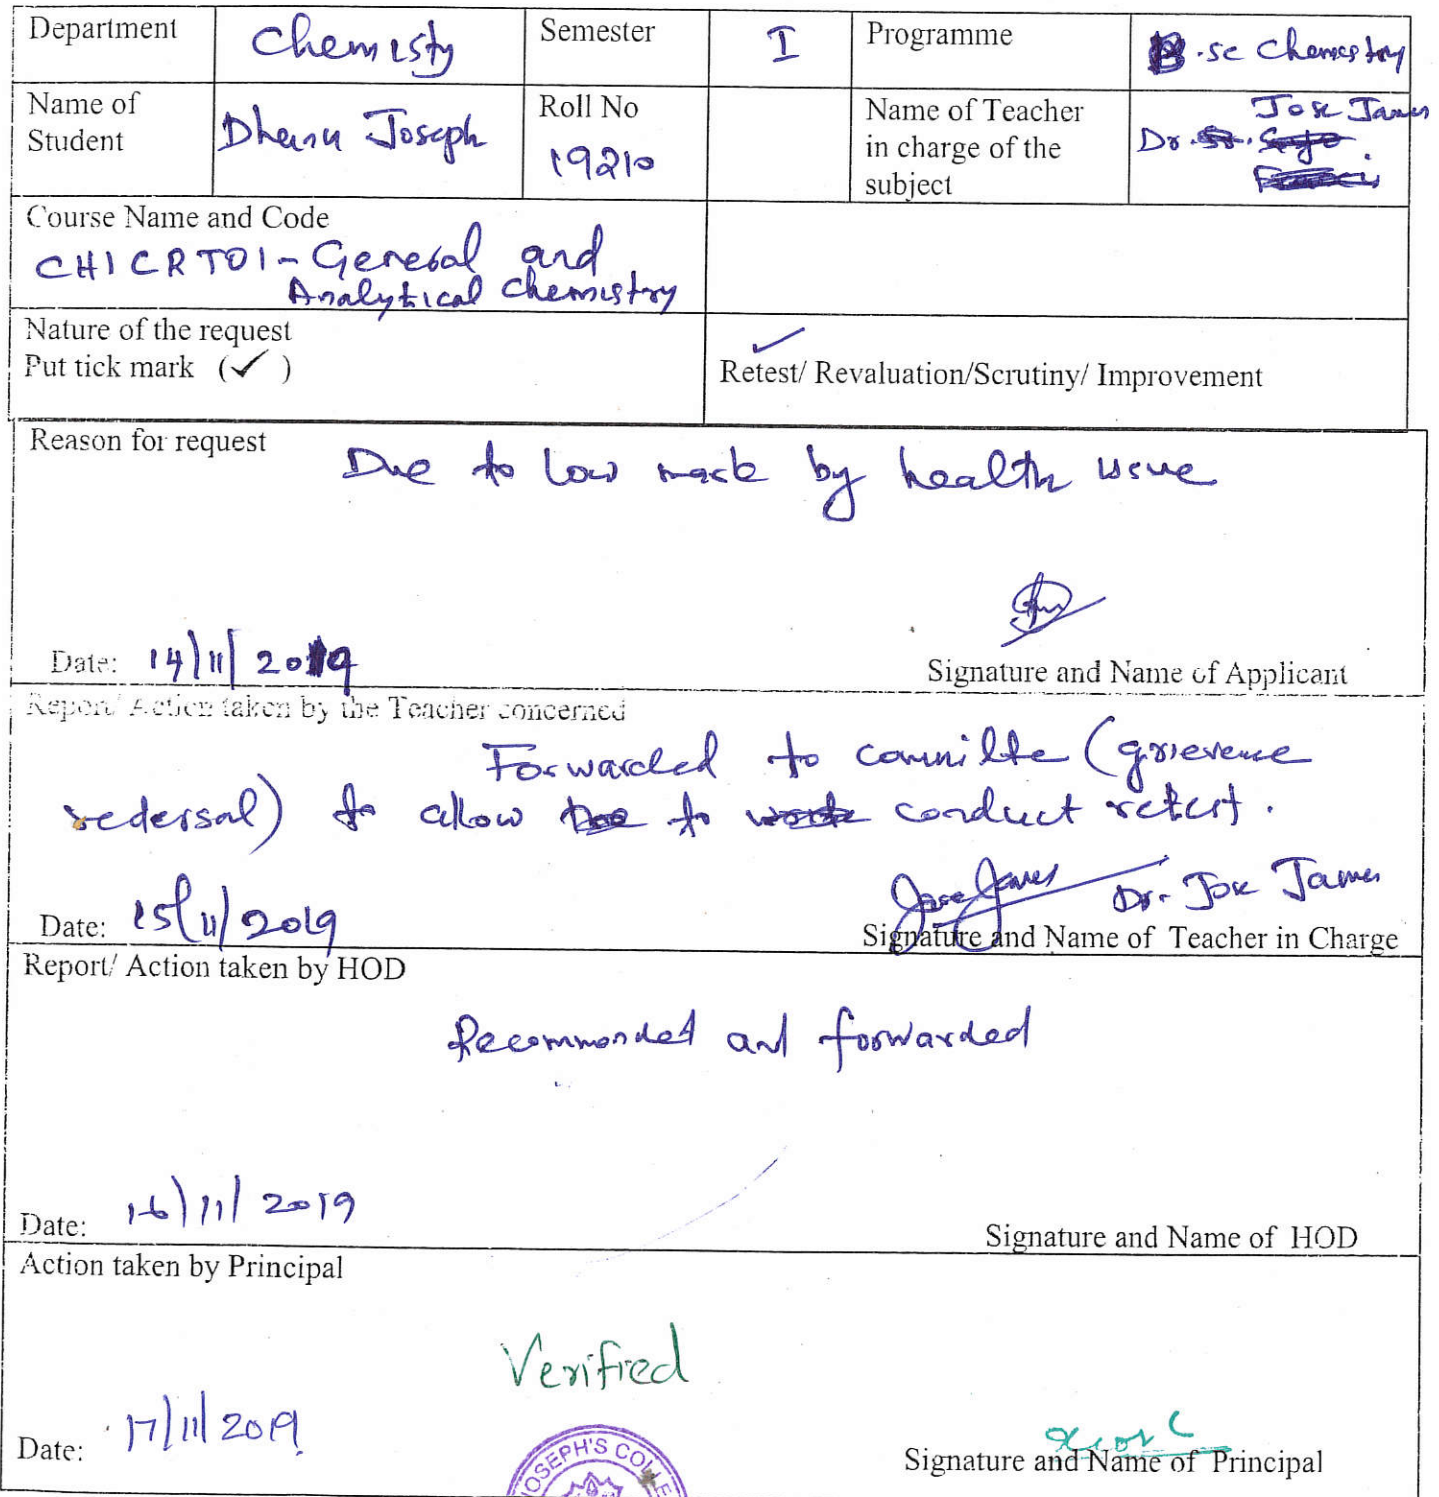 Department Chemisty Semester I Programme B.sc Chemistry
Name of Student Dhanu Joseph Roll No 19210 Name of Teacher in charge of the subject Dr. Jose James
Course Name and Code
CH1CRT01-General and
Analytical Chemistry
Nature of the request
Put tick mark (✓)
Retest/ Revaluation/Scrutiny/ Improvement
Reason for request
Due to low mark by health issue
Date: 14/11/2019
Signature and Name of Applicant
Report/ Action taken by the Teacher concerned
Forwarded to committe (grievence
redersal) to allow to conduct retest.
Jose James Dr. Jose James
Date: 15/11/2019
Signature and Name of Teacher in Charge
Report/ Action taken by HOD
Recommended and forwarded
Date: 16/11/2019
Signature and Name of HOD
Action taken by Principal
Verified
Date: 17/11/2019
Signature and Name of Principal
JOSEPH'S COLLE